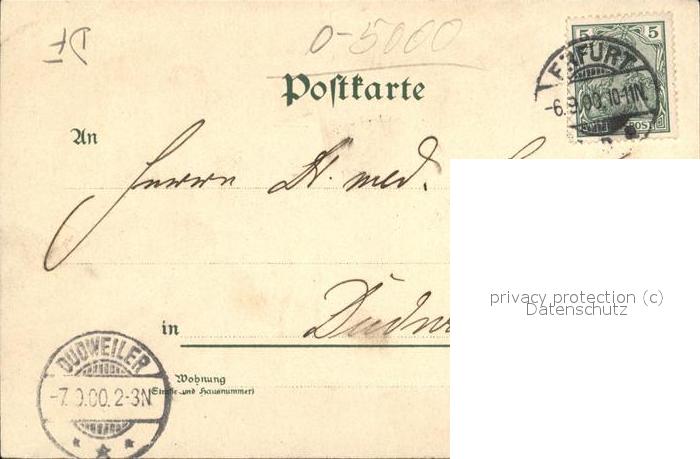 DF
D-5060
5 5
ERFURT
-6.9.00.10-11N.
POST
Postkarte
An
Herrn Dr. med.
privacy protection (c)
Datenschutz
in Dudw
DUDWEILER
-7.9.00.2-3N
Wohnung
(Straße und Hausnummer)